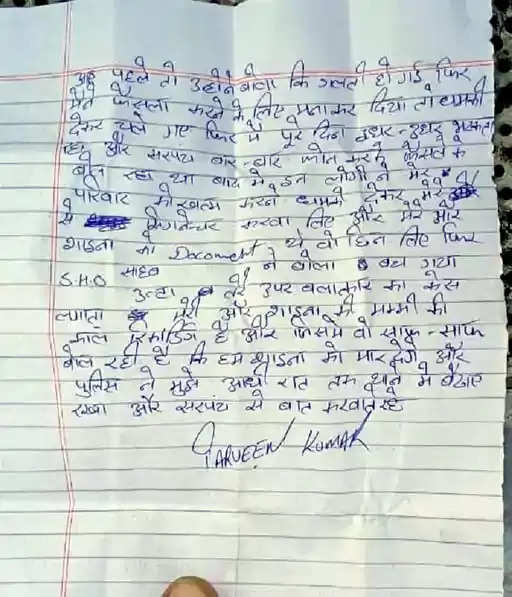 पहले तो उन्होंने बोला कि गलती हो गई फिर
मैंने फैसला करने के लिए मना कर दिया तो धमकी
देकर चले गए फिर मैं पूरे दिन इधर-उधर भागता
रहा और सरपंच बार-बार फोन करके फैसले के
बोल रहा था बाद में इन लोगों ने मेरे
परिवार को खत्म करने धमकी देकर मेरे
से सिग्नेचर करवा लिए और मेरे और
शाइना के Document थे वो छिन लिए फिर
S.H.O साहब ने बोला बच गया
उन्हा तेरे उपर बलात्कार का केस
लगाता मेरी और शाइना की मम्मी की
काल रिकॉर्डिंग है और जिसमें वो साफ-साफ
बोल रही है कि हम शाइना को मार देंगे और
पुलिस ने मुझे आधी रात तक थाने में बैठाए
रखा और सरपंच से बात करवाते रहे
PARVEEN KUMAR